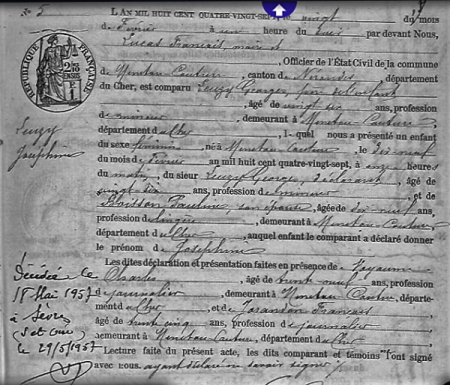 N° 5
L'AN MIL HUIT CENT QUATRE-VINGT-SEPT, le vingt du mois
de Février à une heure du soir par devant Nous,
Lucas Français, maire et
Officier de l'État Civil de la commune
de Menetou Couture, canton de Nérondes, département
du Cher, est comparu Leuzy Georges, père de l'enfant
âgé de vingt six ans, profession
de mineur, demeurant à Menetou-Couture,
département du Cher, l quel nous a présenté un enfant
du sexe féminin, né à Menetou-Couture, le dix neuf
du mois de Février an mil huit cent quatre-vingt-sept, à onze heures
du matin, du sieur Leuzy George, déclarant, âgé de
vingt six ans, profession de mineur, et de
Boisson Pauline, son épouse, âgée de dix-neuf ans,
profession de, demeurant à Menetou-Couture
département du Cher, auquel enfant le comparant a déclaré donner
le prénom de Joséphine
Les dites déclaration et présentation faites en présence de
Charles, âgé de neuf ans, profession
de journalier, demeurant à Menetou-Couture, départe-
ment du Cher, et de Français
âgé de trente cinq ans, profession de journalier
demeurant à Menetou-Couture, département du Cher
Lecture faite du présent acte, les dits comparant et témoins ont signé
avec nous. ayant déclaré ne savoir signer
Leuzy
Joséphine
Décédée le
18 Mai 1957
à Sèvres
(S et Oise)
le 29/5/1957
RÉPUBLIQUE FRANÇAISE